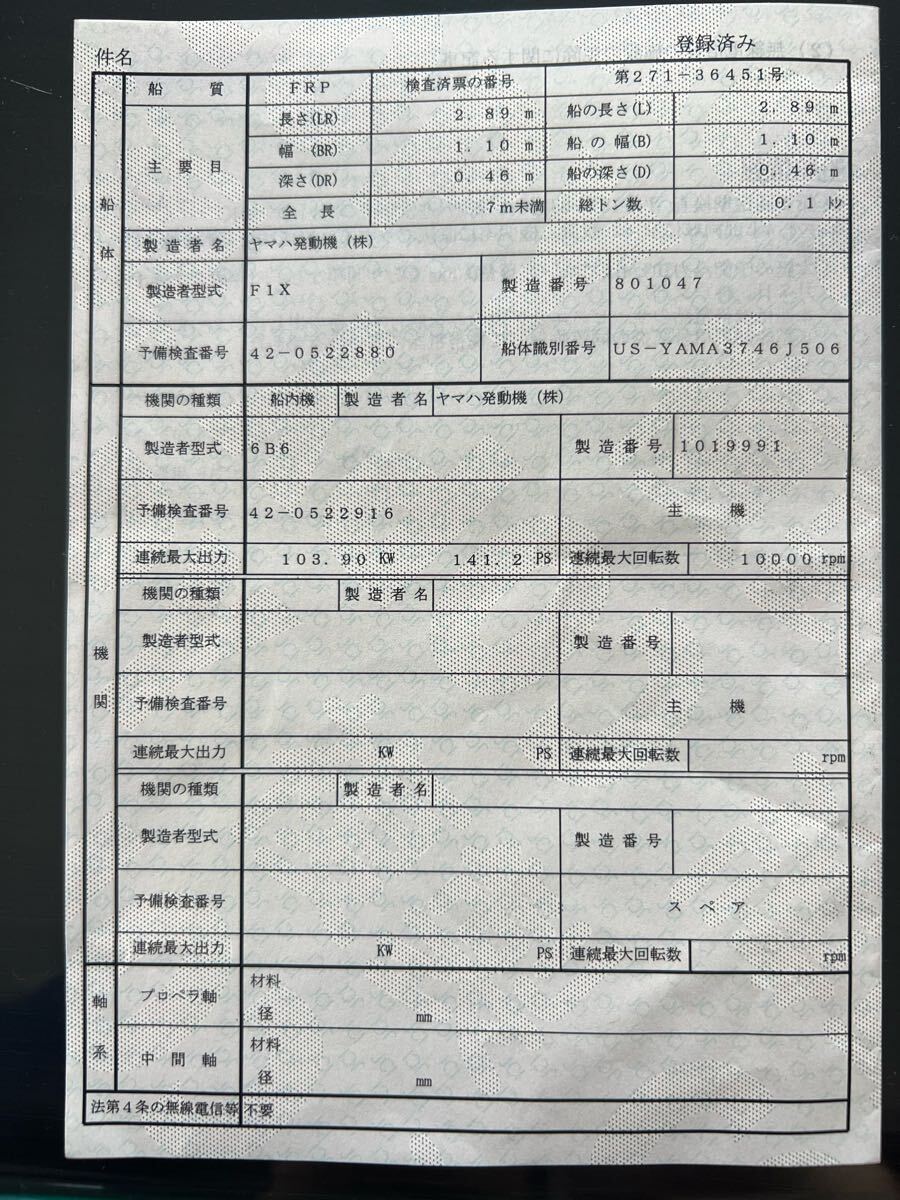 件名 登録済み
船質 FRP 検査済票の番号 第271-36451号
主要目 長さ(LR) 2.89 m 船の長さ(L) 2.89 m
幅 (BR) 1.10 m 船の幅(B) 1.10 m
深さ(DR) 0.46 m 船の深さ(D) 0.46 m
全長 7m未満 総トン数 0.1 トン
船体
製造者名 ヤマハ発動機(株)
製造者型式 F1X 製造番号 801047
予備検査番号 42-0522880 船体識別番号 US-YAMA3746J506
機関の種類 船内機 製造者名 ヤマハ発動機(株)
製造者型式 6B6 製造番号 1019991
予備検査番号 42-0522916 主機
連続最大出力 103.90 KW 141.2 PS 連続最大回転数 10000 rpm
機関の種類 製造者名
製造者型式 製造番号
機関
予備検査番号 主機
連続最大出力 KW PS 連続最大回転数 rpm
機関の種類 製造者名
製造者型式 製造番号
予備検査番号 スペア
連続最大出力 KW PS 連続最大回転数 rpm
軸系
プロペラ軸 材料
径 mm
中間軸 材料
径 mm
法第4条の無線電信等 不要